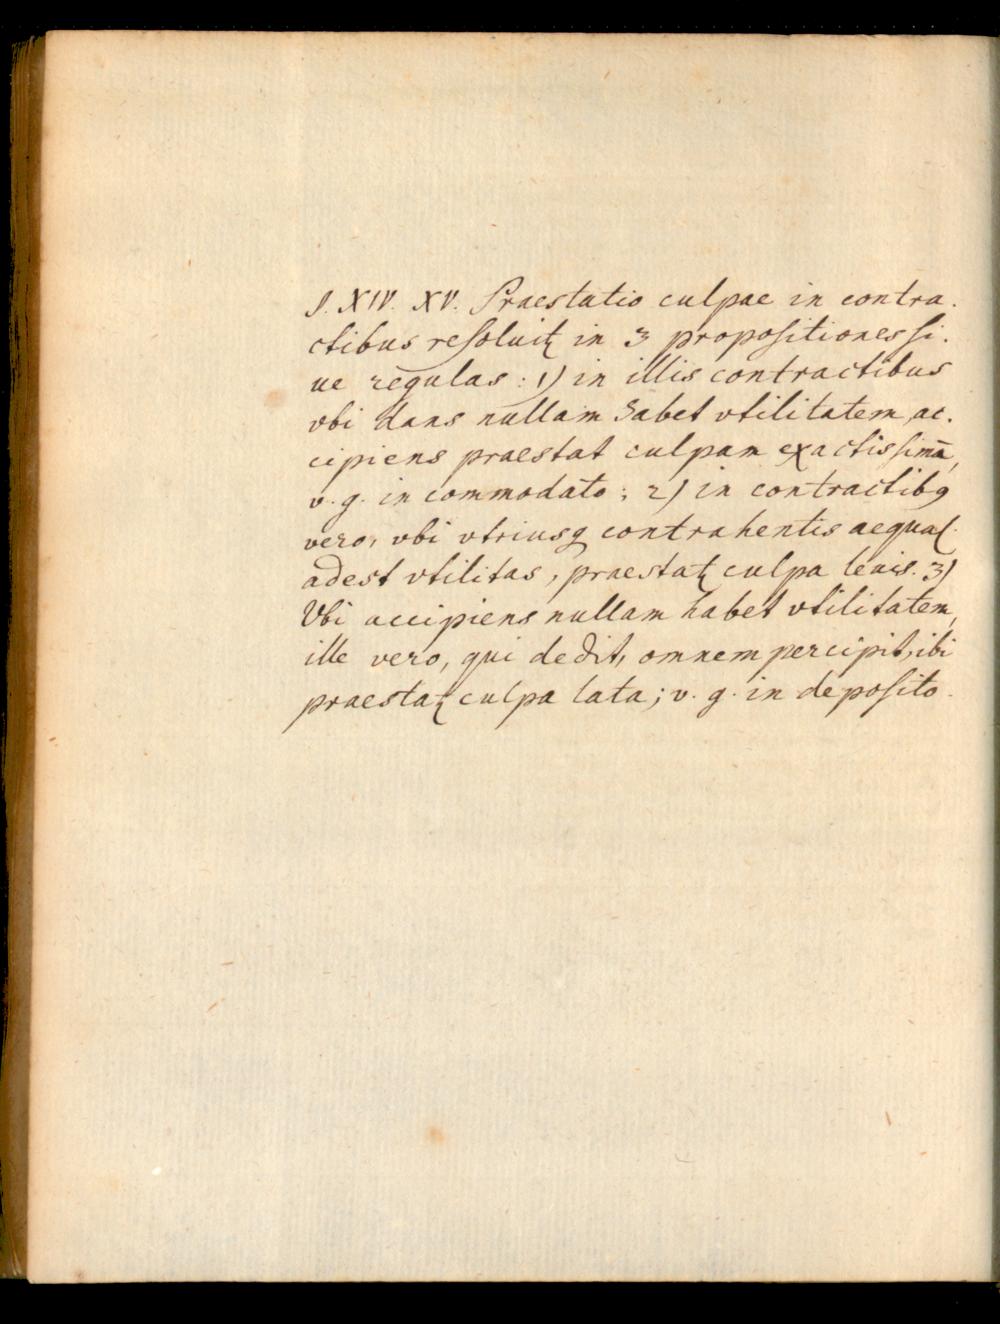 §. XIV. XV. Praestatio culpae in contra-
ctibus resoluitꝛ in 3 propositiones si-
ue regulas: 1) in illis contractibus
vbi dans nullam habet vtilitatem, ac-
cipiens praestat culpam exactissimā,
v. g. in commodato; 2) in contractibꝰ
vero, vbi vtriusqꝫ contrahentis aequal.
adest vtilitas, praestatꝛ culpa leuis. 3)
Vbi accipiens nullam habet vtilitatem,
ille vero, qui dedit, omnem percipit, ibi
praestatꝛ culpa lata; v. g. in deposito.